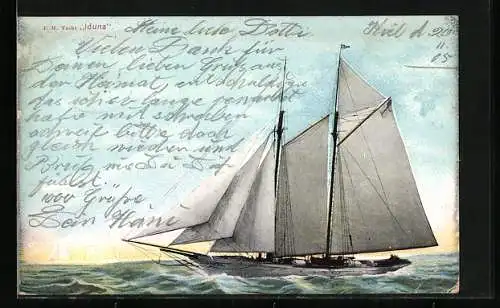 I. M. Yacht „Iduna“
Kiel d. 20.
11.
05
Meine liebe Dotti
Vielen Dank für
Deinen lieben Gruß aus
der Heimat, entschuldige
das ich so lange gewartet
habe mit schreiben
schreib bitte doch
gleich wieder und
wie Du Dich
fühlst
Grüße
Dein